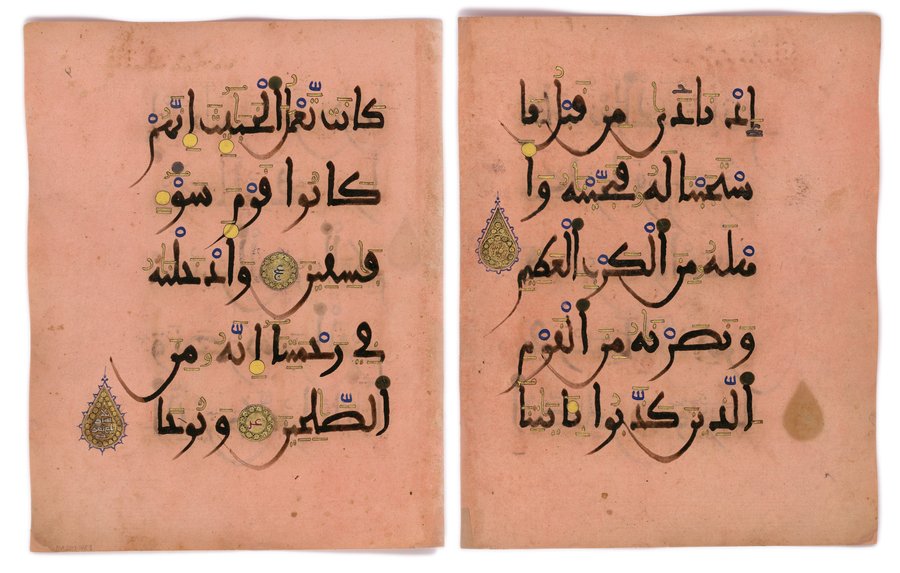 كانت تعمل الخبيث إنهم
كانوا قوم سوء
فسقين وأدخلنه
في رحمتنا إنه من
الصلحين ونوحا
إذ نادى من قبل فا
ستجبنا له فنجينه وأ
هله من الكرب العظيم
ونصرنه من القوم
الذين كذبوا بايتنا